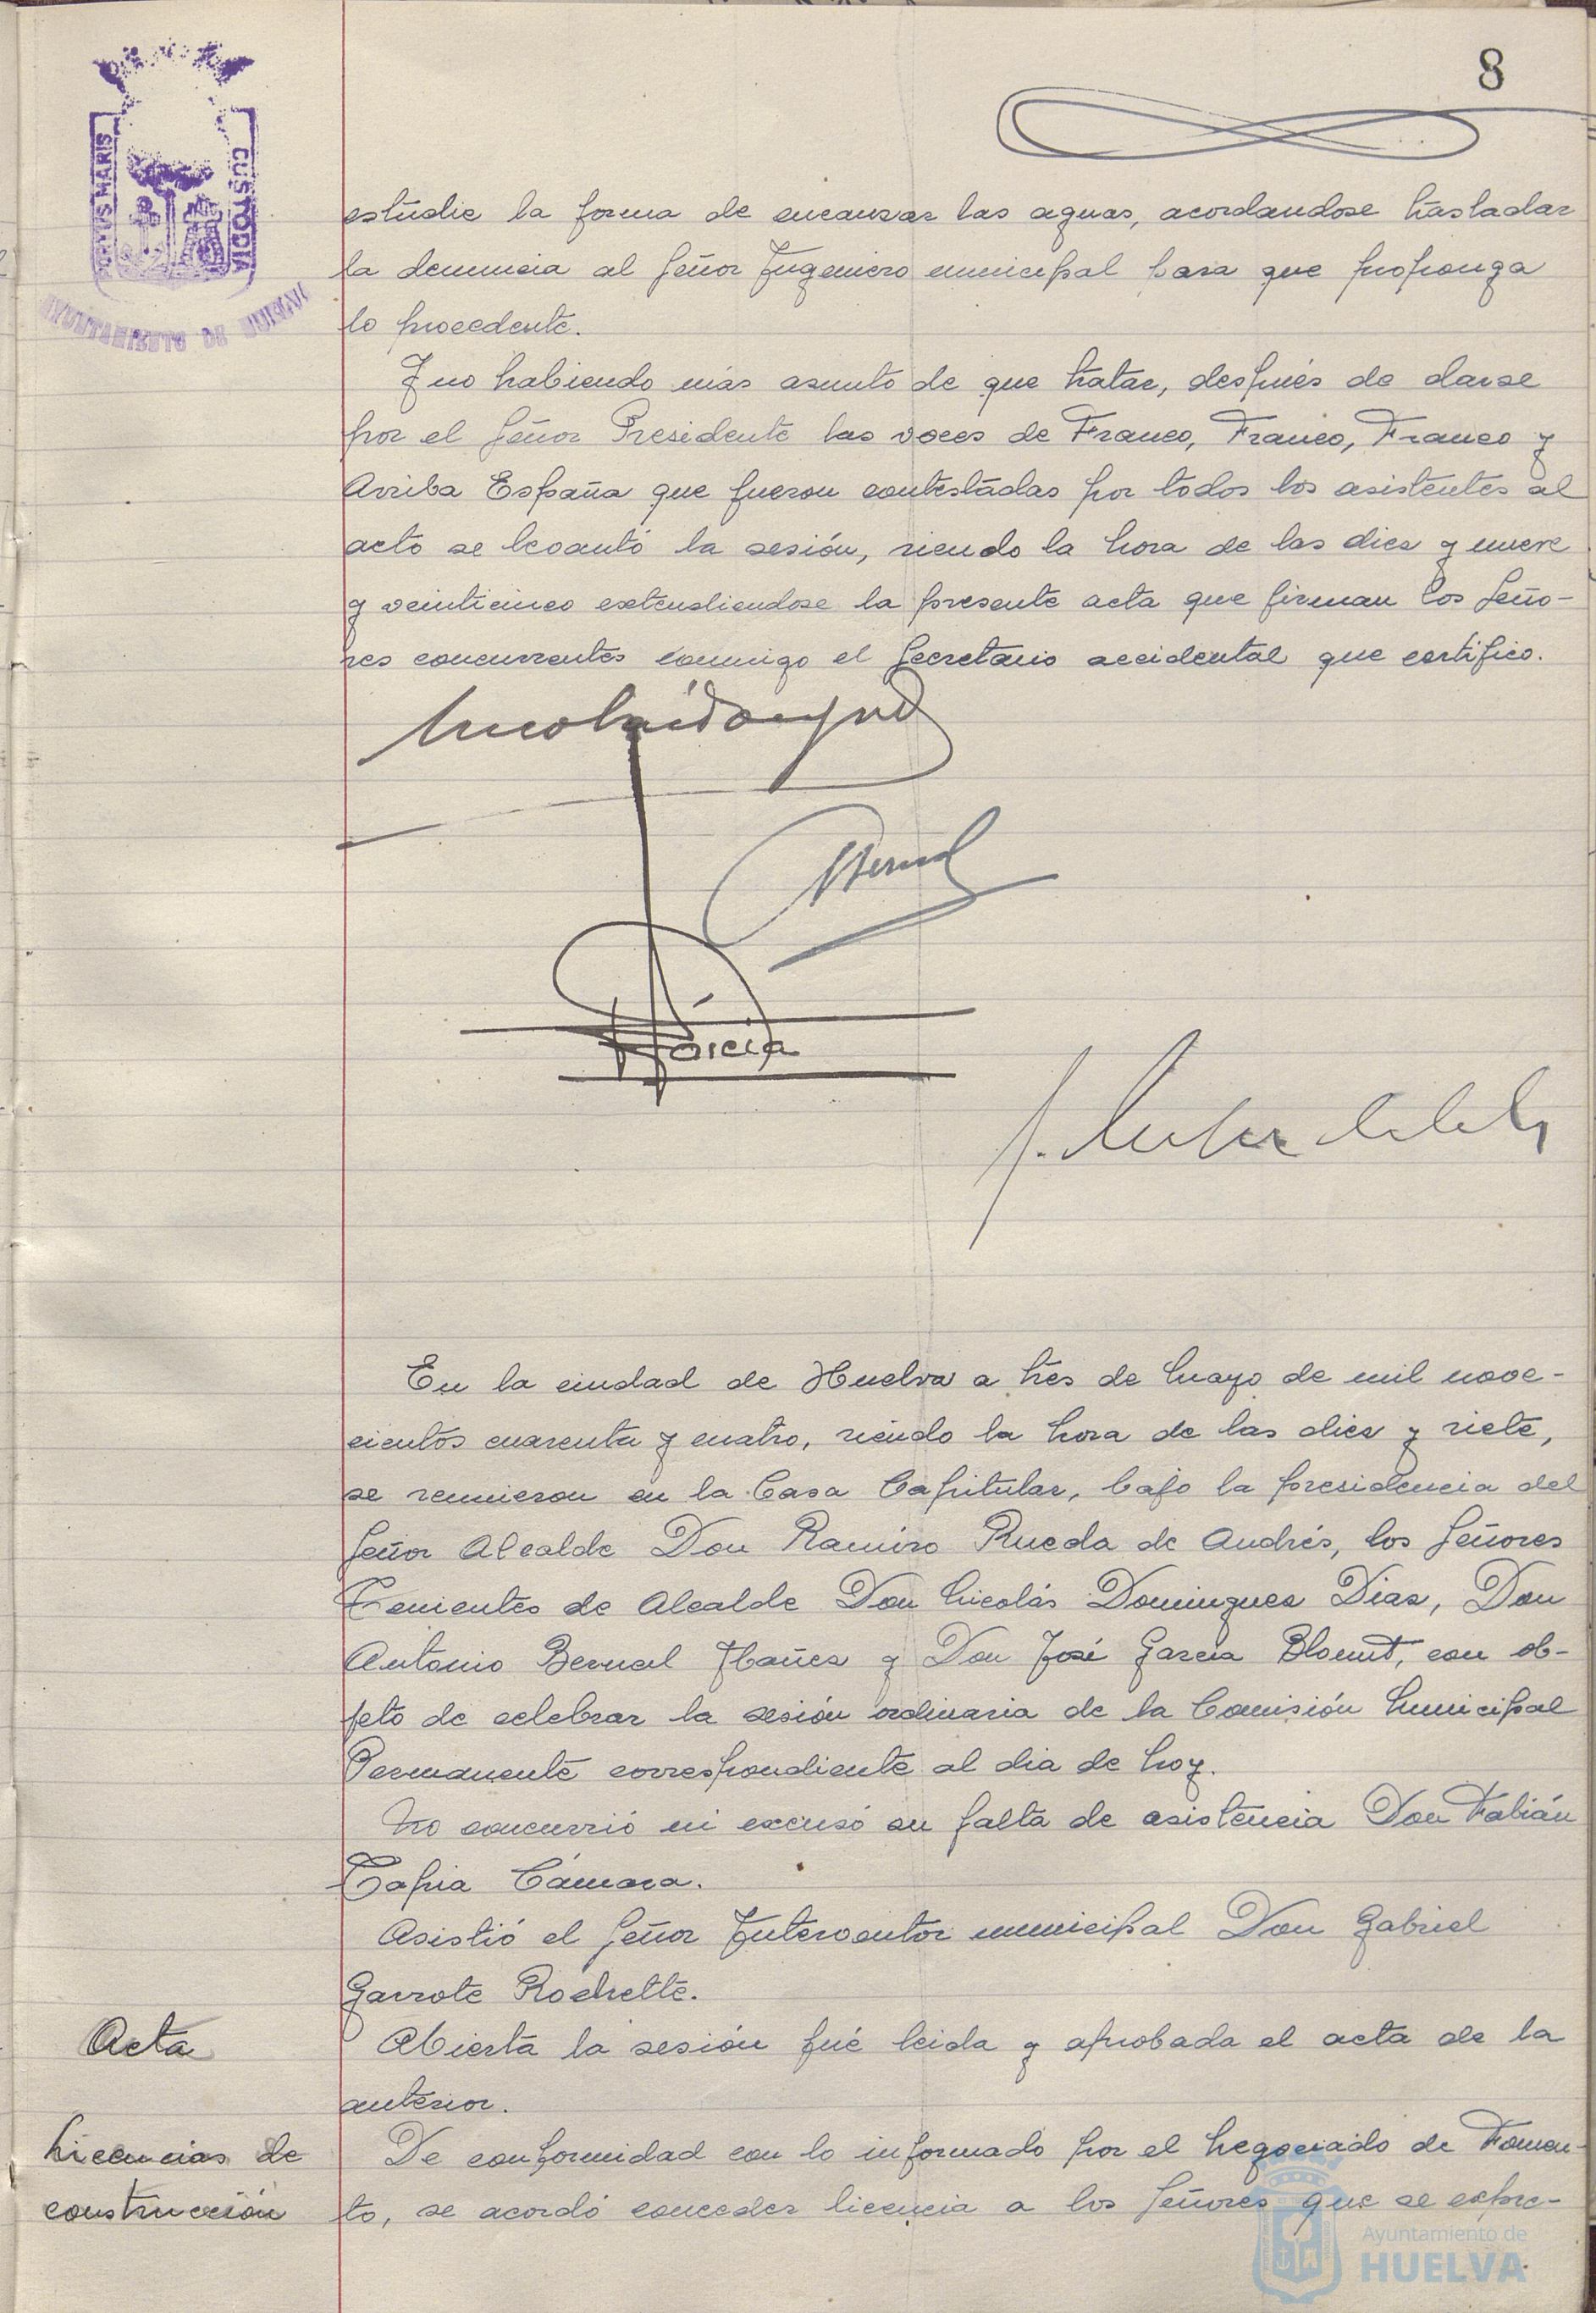 8
PORTUS MARIS
CUSTODIA
AYUNTAMIENTO DE HUELVA
estudie la forma de encauzar las aguas, acordandose trasladar
la denuncia al Señor Ingeniero municipal para que proponga
lo procedente.
Y no habiendo más asunto de que tratar, después de darse
por el Señor Presidente las voces de Franco, Franco, Franco y
Arriba España que fueron contestadas por todos los asistentes al
acto se levantó la sesión, siendo la hora de las diez y nueve
y veinticinco extendiendose la presente acta que firman los Seño-
res concurrentes conmigo el Secretario accidental que certifico.
García
En la ciudad de Huelva a tres de Mayo de mil nove-
cientos cuarenta y cuatro, siendo la hora de las diez y siete,
se reunieron en la Casa Capitular, bajo la presidencia del
Señor Alcalde Don Ramiro Rueda de Andrés, los Señores
Tenientes de Alcalde Don Nicolás Dominguez Diaz, Don
Antonio Bernal Ibañez y Don José García Blount, con ob-
jeto de celebrar la sesión ordinaria de la Comisión Municipal
Permanente correspondiente al dia de hoy.
No concurrió ni excusó su falta de asistencia Don Fabián
Tapia Cámara.
Asistió el Señor Interventor municipal Don Gabriel
Garrote Rochette.
Acta
Abierta la sesión fué leida y aprobada el acta de la
anterior.
Licencias de
construcción
De conformidad con lo informado por el Negociado de Fomen-
to, se acordó conceder licencia a los Señores que se expre-
Ayuntamiento de
HUELVA